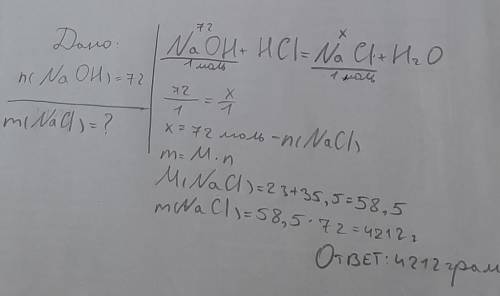 Дано:
n(NaOH)=72
m(NaCl)=?
72 x
NaOH+HCl=NaCl+H₂O
1 моль 1 моль
72/1=x/1
x=72 моль-n(NaCl)
m=M·n
M(NaCl)=23+35,5=58,5
m(NaCl)=58,5·72=4212г
Ответ: 4212 грам